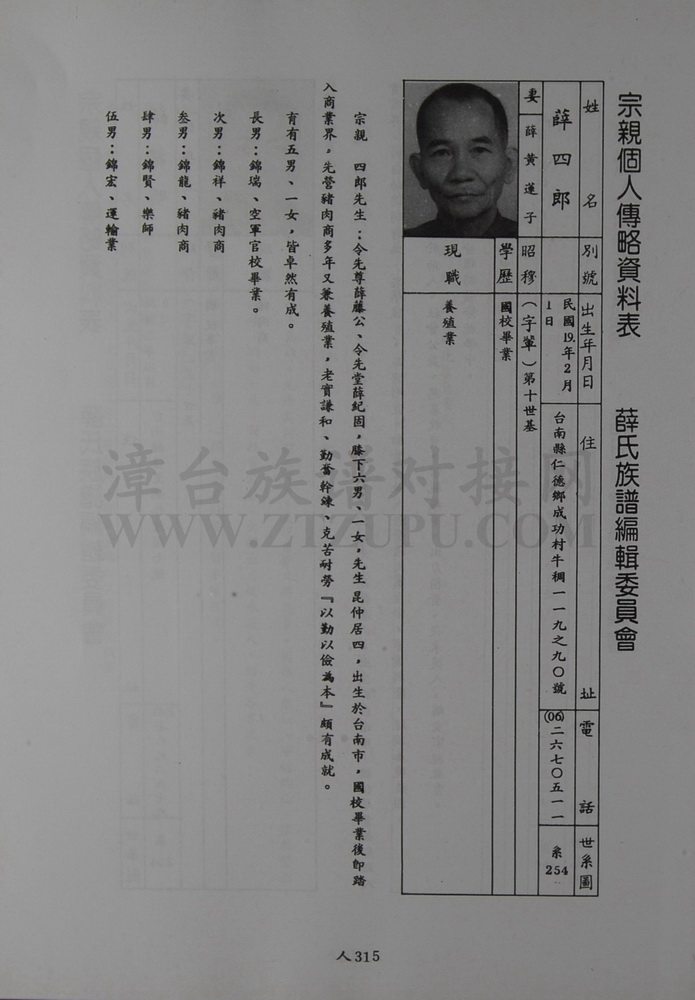 宗親個人傳略資料表　薛氏族譜編輯委員會
姓名　別號　出生年月日　住址　電話　世系圖
薛四郎　民國19.年2月1日　台南縣仁德鄉成功村牛稠一一九之九〇號　(06)二六七〇五一一　系254
妻　薛黃蓮子　昭穆　(字輩)第十世基
學歷　國校畢業
現職　養殖業
宗親　四郎先生：令先尊薛藤公、令先堂薛紀固，膝下六男、一女，先生昆仲居四，出生於台南市，國校畢業後即踏
入商業界，先營豬肉商多年又兼養殖業，老實謙和、勤奮幹練、克苦耐勞『以勤以儉為本』頗有成就。
育有五男、一女，皆卓然有成。
長男：錦瑞、空軍官校畢業。
次男：錦祥、豬肉商
叁男：錦龍、豬肉商
肆男：錦賢、樂師
伍男：錦宏、運輸業
人315
漳台族谱对接网
WWW.ZTZUPU.COM